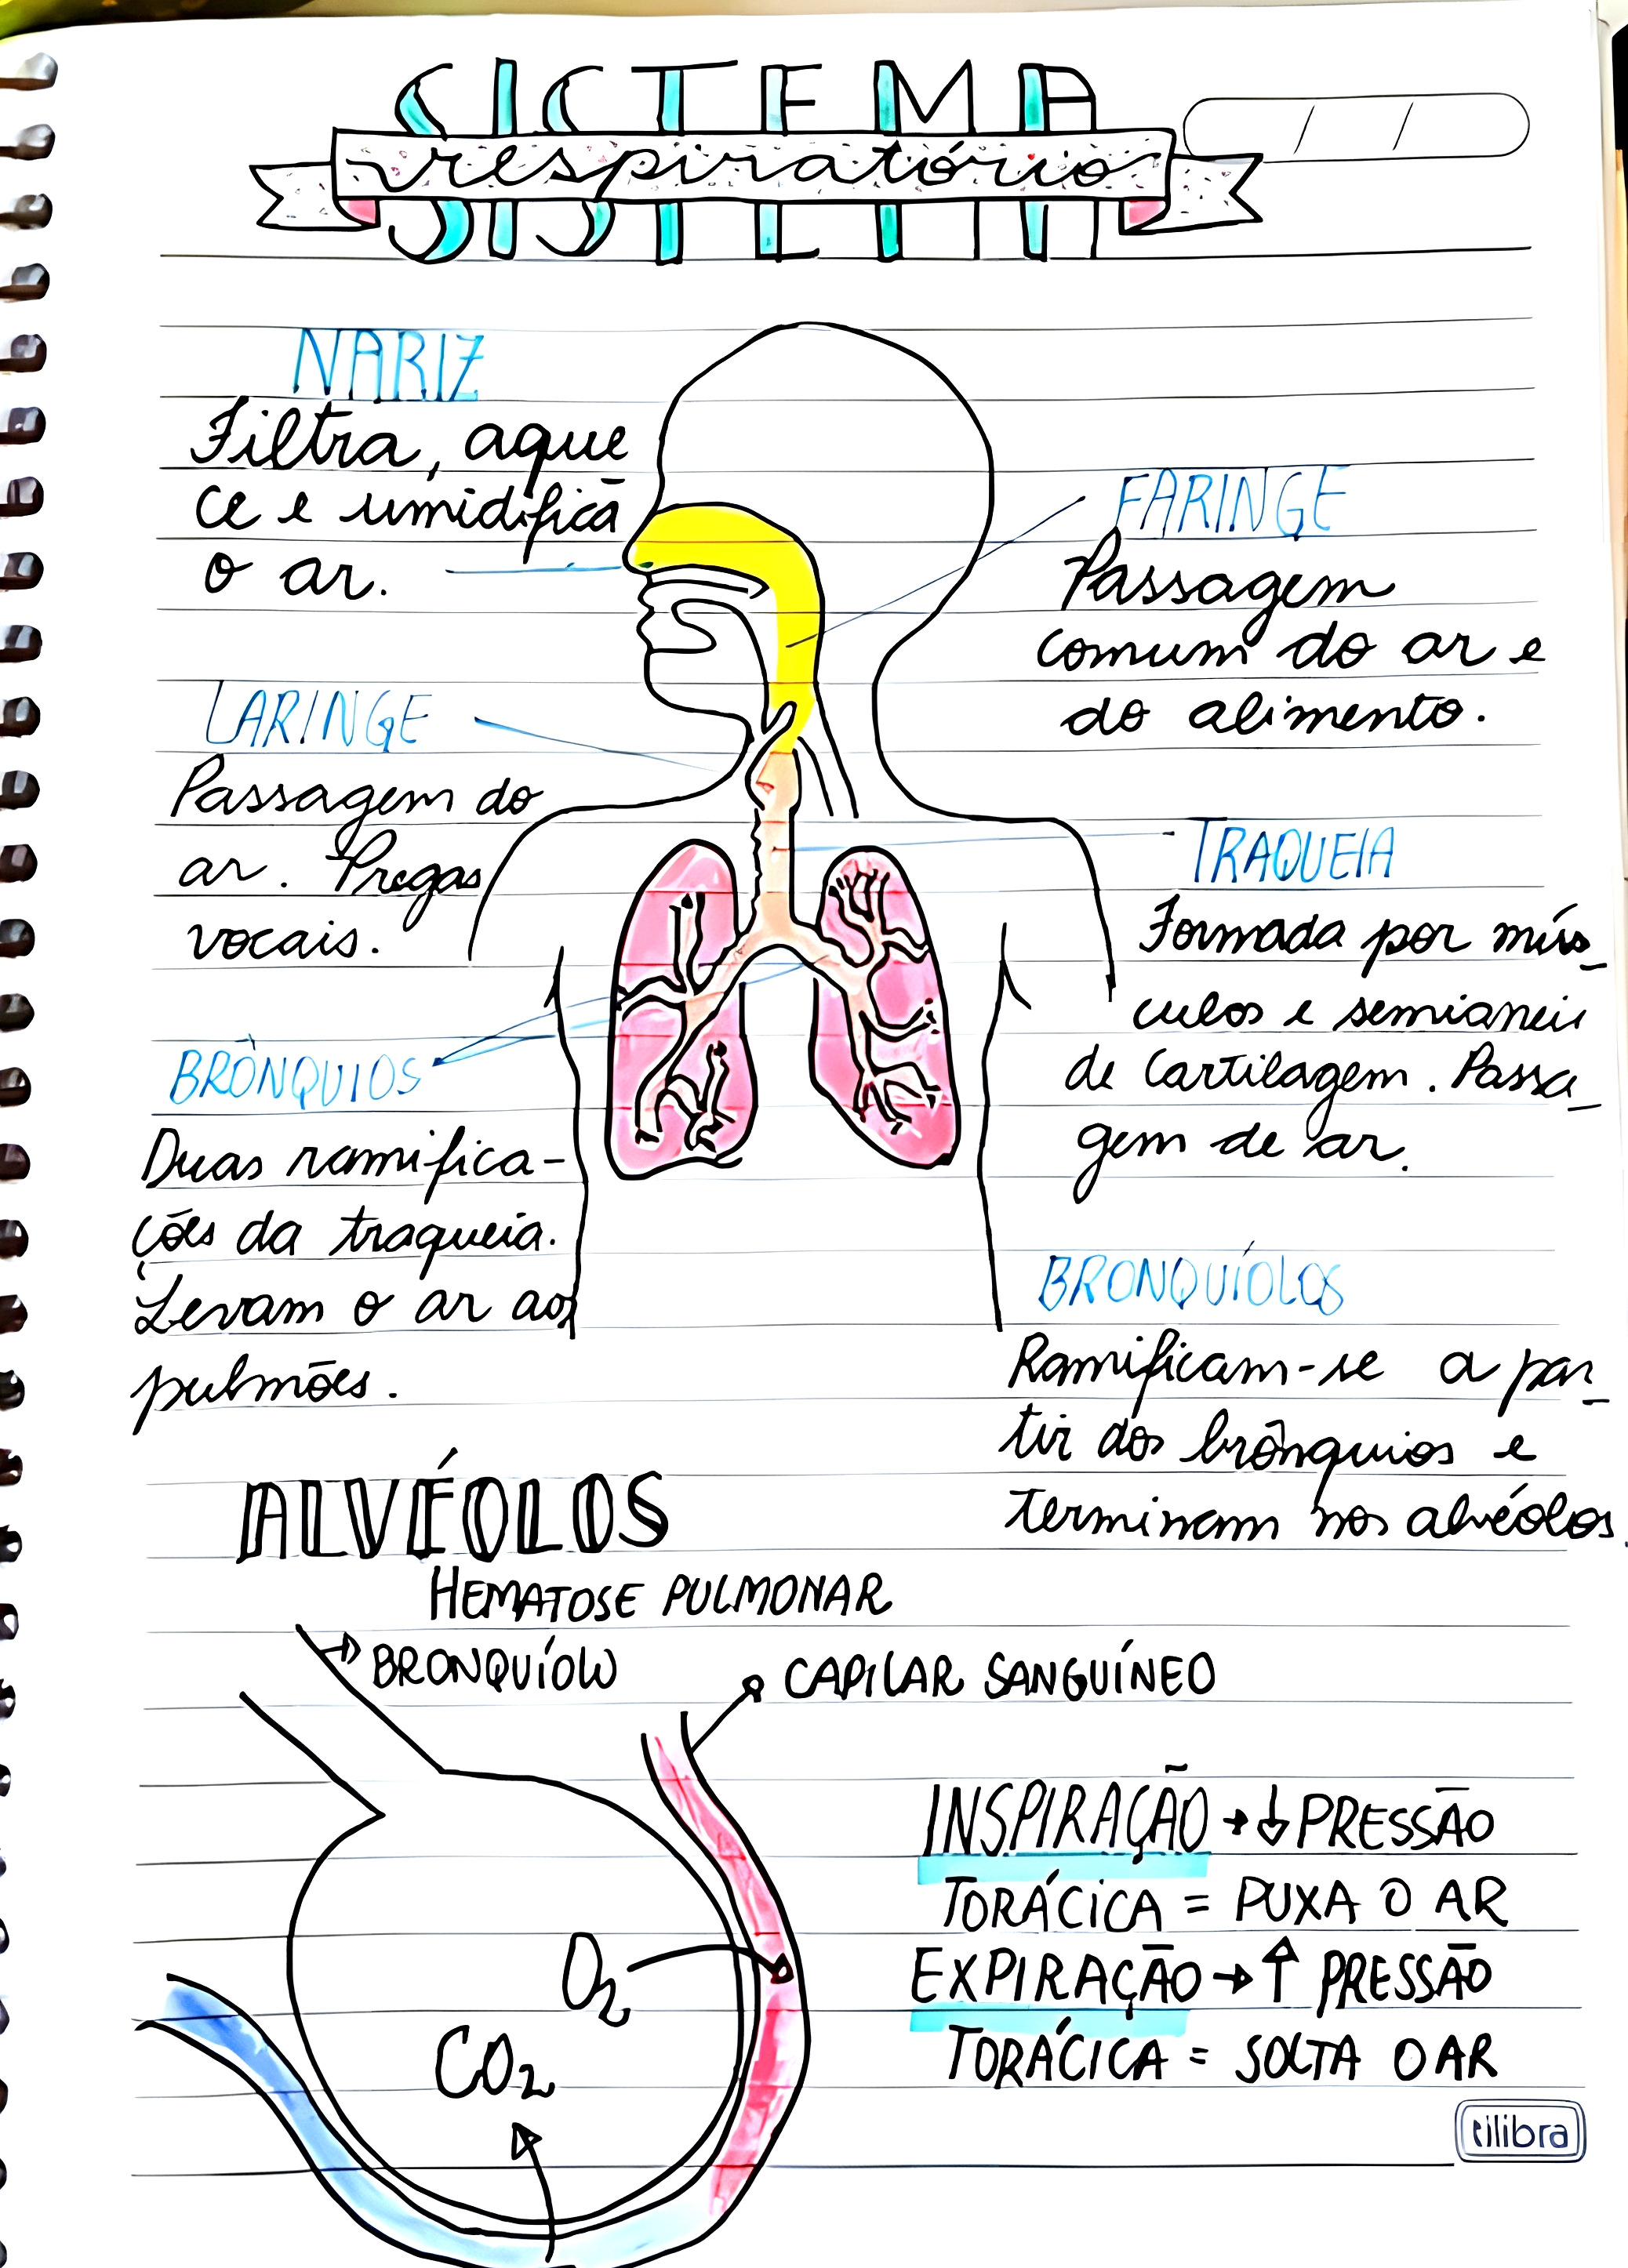 SISTEMA
respiratório
NARIZ
Filtra, aque
ce e umidifica
o ar.
FARINGE
Passagem
comum do ar e
do alimento.
LARINGE
Passagem do
ar. Pregas
vocais.
TRAQUEIA
Formada por mús_
culos e semianeis
de cartilagem. Passa_
gem de ar.
BRÔNQUIOS
Duas ramifica-
ções da traqueia.
Levam o ar aos
pulmões.
BRONQUÍOLOS
Ramificam-se a par_
tir dos brônquios e
terminam nos alvéolos.
ALVÉOLOS
HEMATOSE PULMONAR
BRONQUÍOLO
CAPILAR SANGUÍNEO
INSPIRAÇÃO → ↓ PRESSÃO
TORÁCICA = PUXA O AR
EXPIRAÇÃO → ↑ PRESSÃO
TORÁCICA = SOLTA O AR
O2
CO2
tilibra